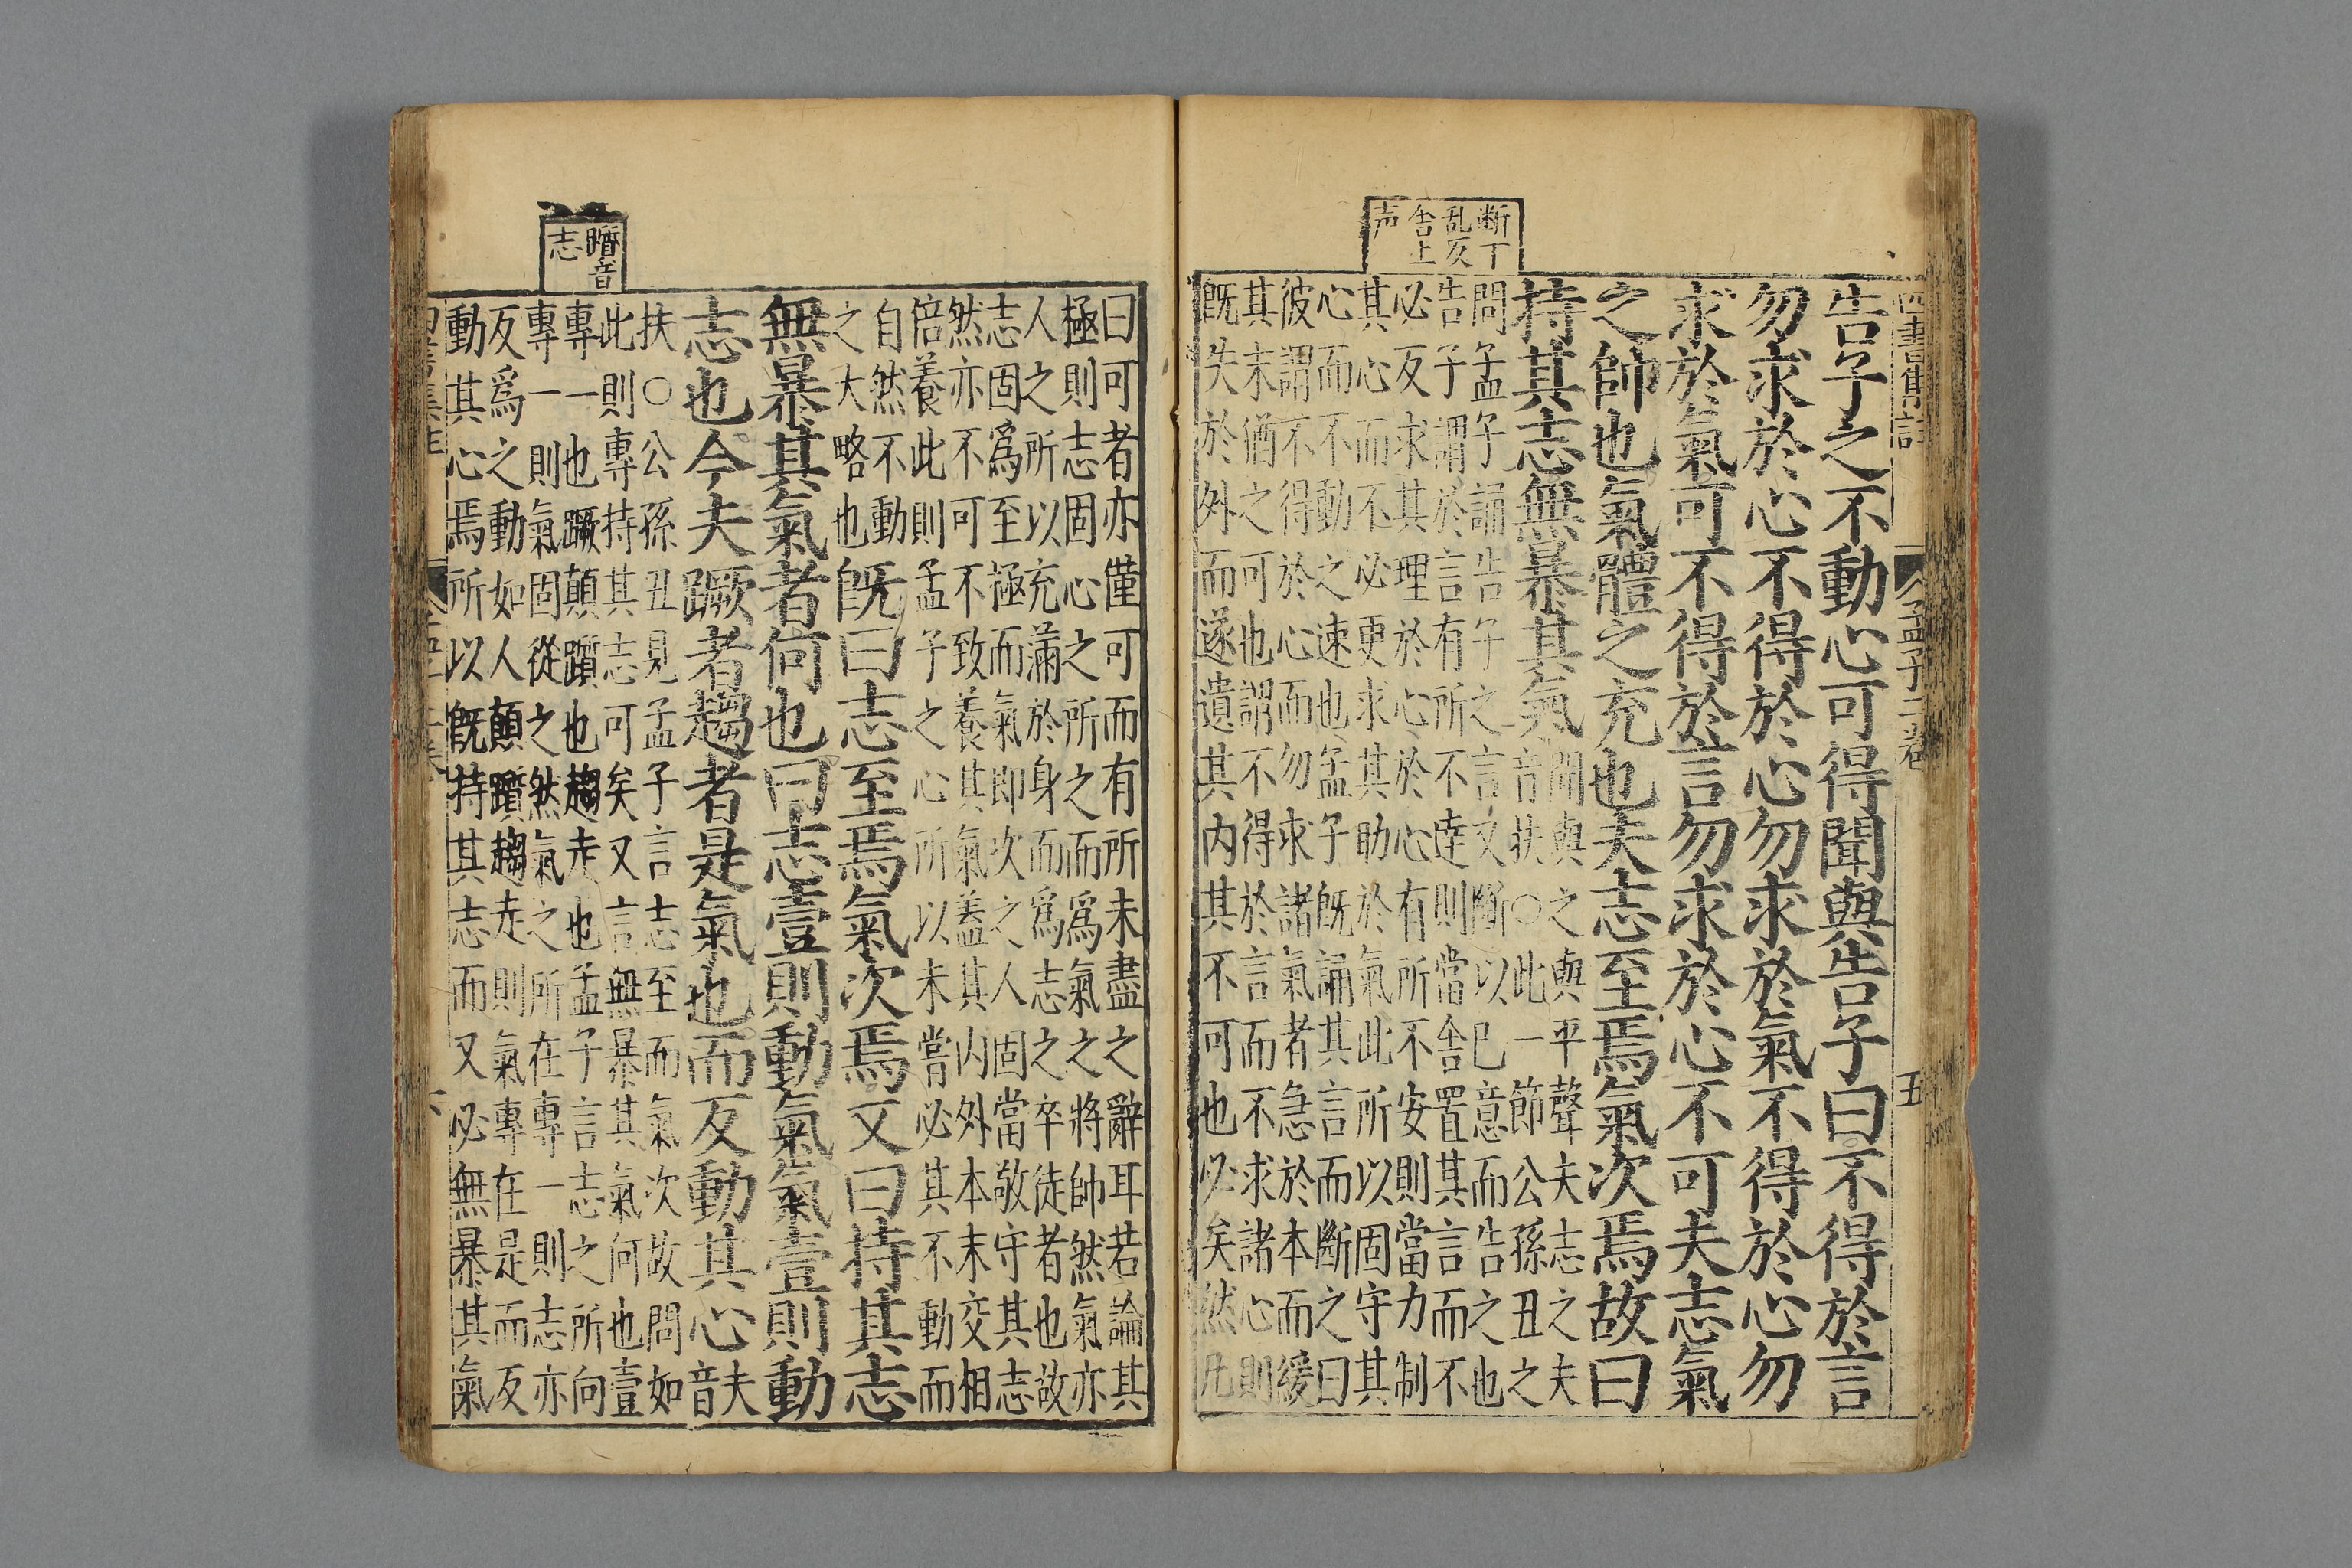 四書集註
孟子二卷
五
断丁
乱反
舍上
声
告子之不動心可得聞與告子曰不得於言
勿求於心不得於心勿求於氣不得於心勿
求於氣可不得於言勿求於心不可夫志氣
之帥也氣體之充也夫志至焉氣次焉故曰
持其志無暴其氣
聞與之與平聲夫志之夫
音扶○此一節公孫丑之
問孟子誦告子之言又斷以已意而告之也
告子謂於言有所不達則當舍置其言而不
必反求其理於心於心有所不安則當力制
其心而不必更求其助於氣此所以固守其
心而不動之速也孟子旣誦其言而斷之曰
彼謂不得於心而勿求諸氣者急於本而緩
其末猶之可也謂不得於言而不求諸心則
旣失於外而遂遺其内其不可也必矣然凡
躓音
志
曰可者亦僅可而有所未盡之辭耳若論其
極則志固心之所之而爲氣之將帥然氣亦
人之所以充滿於身而爲志之卒徒者也故
志固爲至極而氣即次之人固當敬守其志
然亦不可不致養其氣蓋其内外本末交相
倍養此則孟子之心所以未嘗必其不動而
自然不動
之大略也
旣曰志至焉氣次焉又曰持其志
無暴其氣者何也曰志壹則動氣氣壹則動
志也今夫蹶者趨者是氣也而反動其心
夫
音
扶○公孫丑見孟子言志至而氣次故問如
此則專持其志可矣又言無暴其氣何也壹
專一也蹶顛躓也趨走也孟子言志之所向
專一則氣固從之然氣之所在專一則志亦
反爲之動如人顛躓趨走則氣專在是而反
動其心焉所以旣持其志而又必無暴其氣